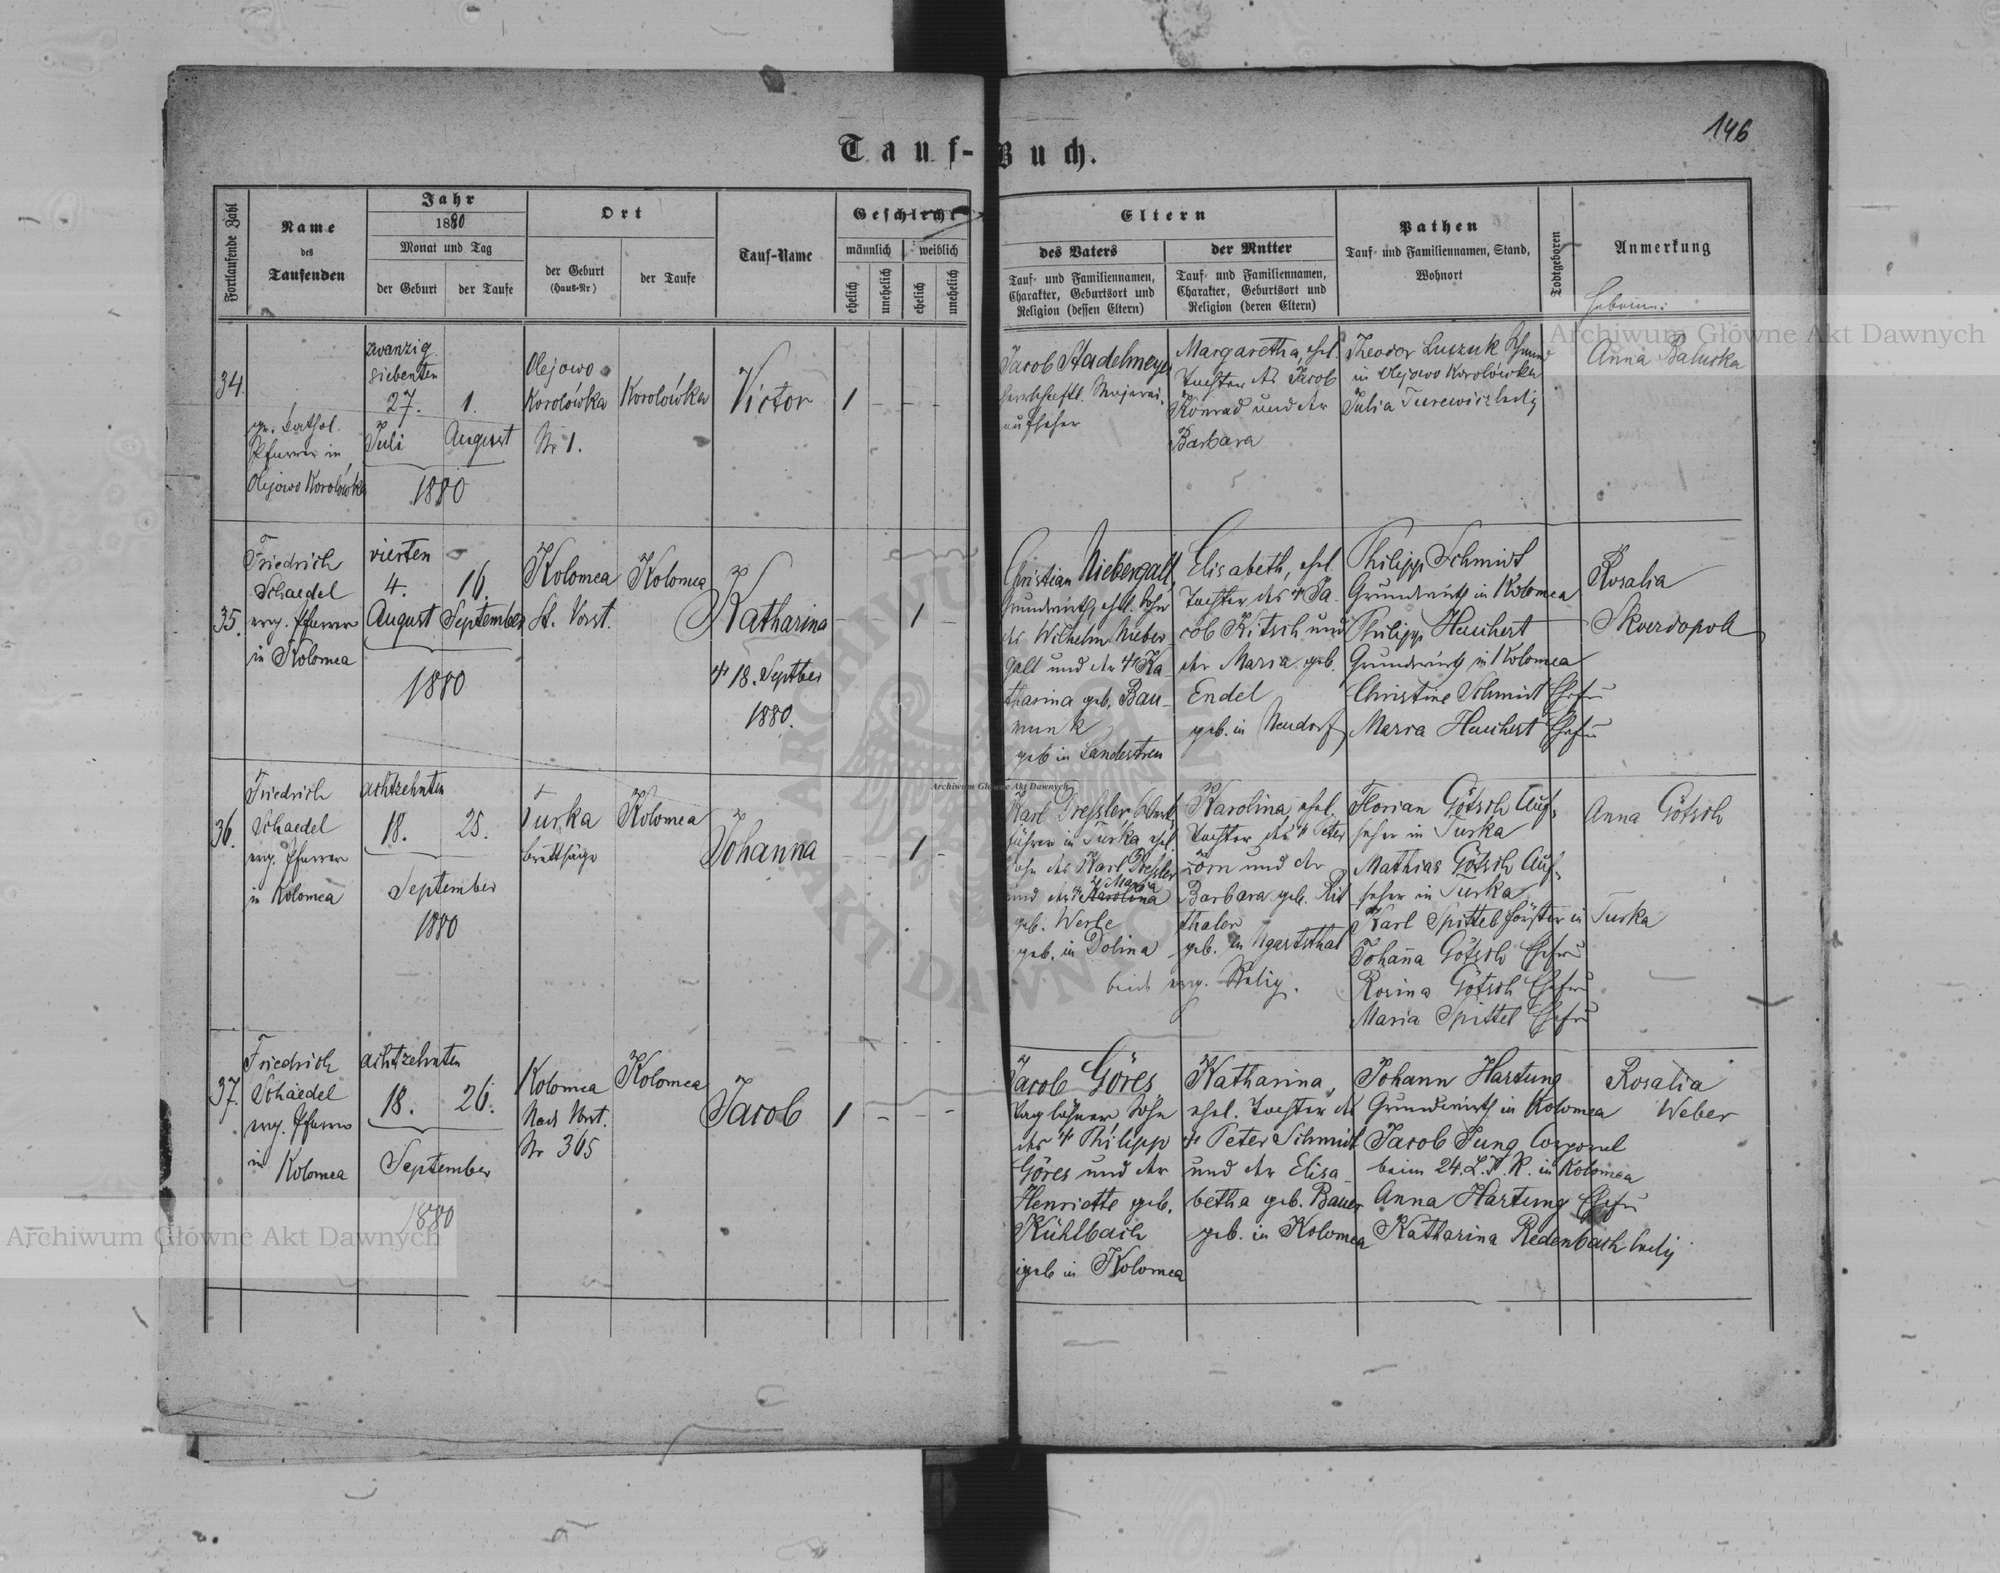 146
Tauf-Buch.
Fortlaufende Zahl
Name
des
Taufenden
Jahr
1880
Monat und Tag
der Geburt
der Taufe
Ort
der Geburt
(Haus-Nr)
der Taufe
Tauf-Name
Geschlecht
männlich
weiblich
ehelich
unehelich
ehelich
unehelich
Eltern
des Vaters
Tauf- und Familiennamen,
Charakter, Geburtsort und
Religion (dessen Eltern)
der Mutter
Tauf- und Familiennamen,
Charakter, Geburtsort und
Religion (deren Eltern)
Pathen
Tauf- und Familiennamen, Stand,
Wohnort
Todtgeboren
Anmerkung
34.
gr. kathol.
Pfarrer in
Olejowo Korolówka
zwanzig
siebenten
27.
Juli
1.
August
1880
Olejowo
Korolówka
Nr 1.
Korolówka
Victor
1 - - -
Jacob Stadelmeyer
herrschaftl.
aufseher
Margaretha, ehel.
Tochter des Jacob
Konrad und der
Barbara
Theodor Luszuk
in Olejowo Korolówka
Julia Turewicz ledig
Anna Baluska
35.
Friedrich
Schaedel
evg. Pfarrer
in Kolomea
vierten
4.
August
16.
September
1880
Kolomea
St. Vorst.
Kolomea
Katharina
18. Septber
1880.
- - 1 -
Christian Niebergall,
Grundwirth, ehl. Sohn
des Wilhelm Nieber
gall und der † Ka-
tharina geb. Bau-
munk
geb in Landestreu
Elisabeth, ehel.
Tochter des † Ja
cob Kitsch und
der Maria geb.
Endel
geb. in Neudorf
Philipp Schmidt
Grundwirth in Kolomea
Philipp Hauchert
Grundwirth in Kolomea
Christine Schmidt Ehefr
Maria Hauchert Ehefr
Rosalia
Skwerdopola
36.
Friedrich
Schaedel
evg. Pfarrer
in Kolomea
achtzehnten
18.
25.
September
1880
Turka
Brettsäge
Kolomea
Johanna
- - 1 -
Karl Dressler, Werk-
führer in Turka, ehel.
Sohn des Karl Dressler
und der † Maria
Karolina
geb. Werle
geb. in Dolina
Karolina, ehel.
Tochter des † Peter
Zorn und der
Barbara geb. Rit
thaler
geb. in Ugartsthal
beide evg. Relig.
Florian Götsch Auf-
seher in Turka
Mathias Götsch Auf-
seher in Turka
Karl Spittel Förster in Turka
Johana Götsch Ehefr
Rosina Götsch Ehefr
Maria Spittel Ehefr
Anna Götsch
37.
Friedrich
Schaedel
evg. Pfarrer
in
Kolomea
achtzehnten
18.
26.
September
1880
Kolomea
Nad. Vorst.
Nr 365
Kolomea
Jacob
1 - - -
Jacob Göres
Taglöhner Sohn
des † Philipp
Göres und der
Henriette geb.
Kühlbach
geb in Kolomea
Katharina,
ehel. Tochter des
† Peter Schmidt
und der Elisa-
betha geb. Bauer
geb. in Kolomea
Johann Hartung
Grundwirth in Kolomea
Jacob Jung Corporal
beim 24. L.I.R. in Kolomea
Anna Hartung Ehefr
Katharina Redenbach ledig
Rosalia
Weber
Archiwum Główne Akt Dawnych
Archiwum Główne Akt Dawnych
Archiwum Główne Akt Dawnych